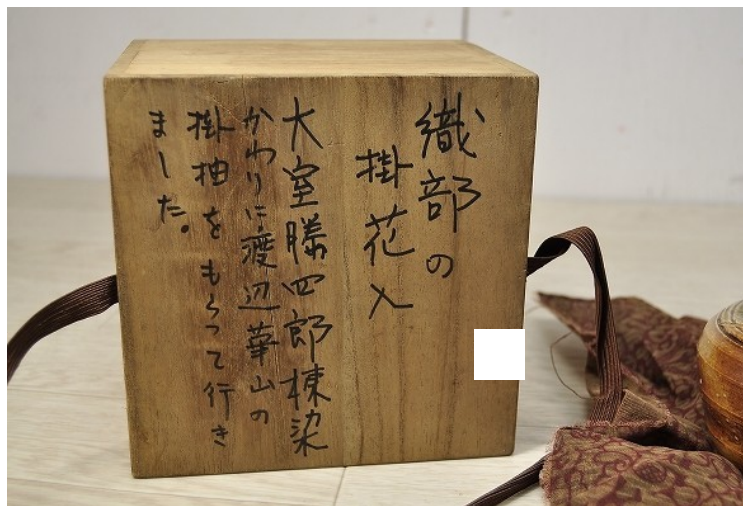 織部の
掛花入
大室勝四郎棟梁
かわりに渡辺華山の
掛抽をもらって行き
ました。